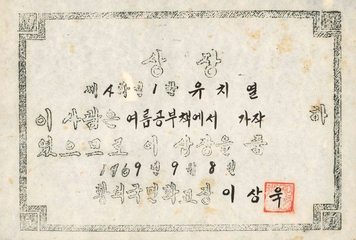 상장
제4학년 1반 유치열
이 사람은 여름공부책에서 가작 하
였으므로 이 상장을 줌
1969년 9월 8일
국민학교장 이상욱